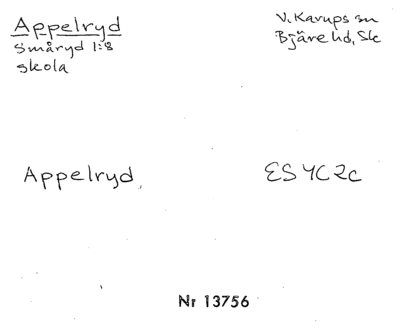 Appelryd
Småryd 1:8
skola
V. Karups sn
Bjäre hd, Sk
Appelryd
ES 4C2c
Nr 13756